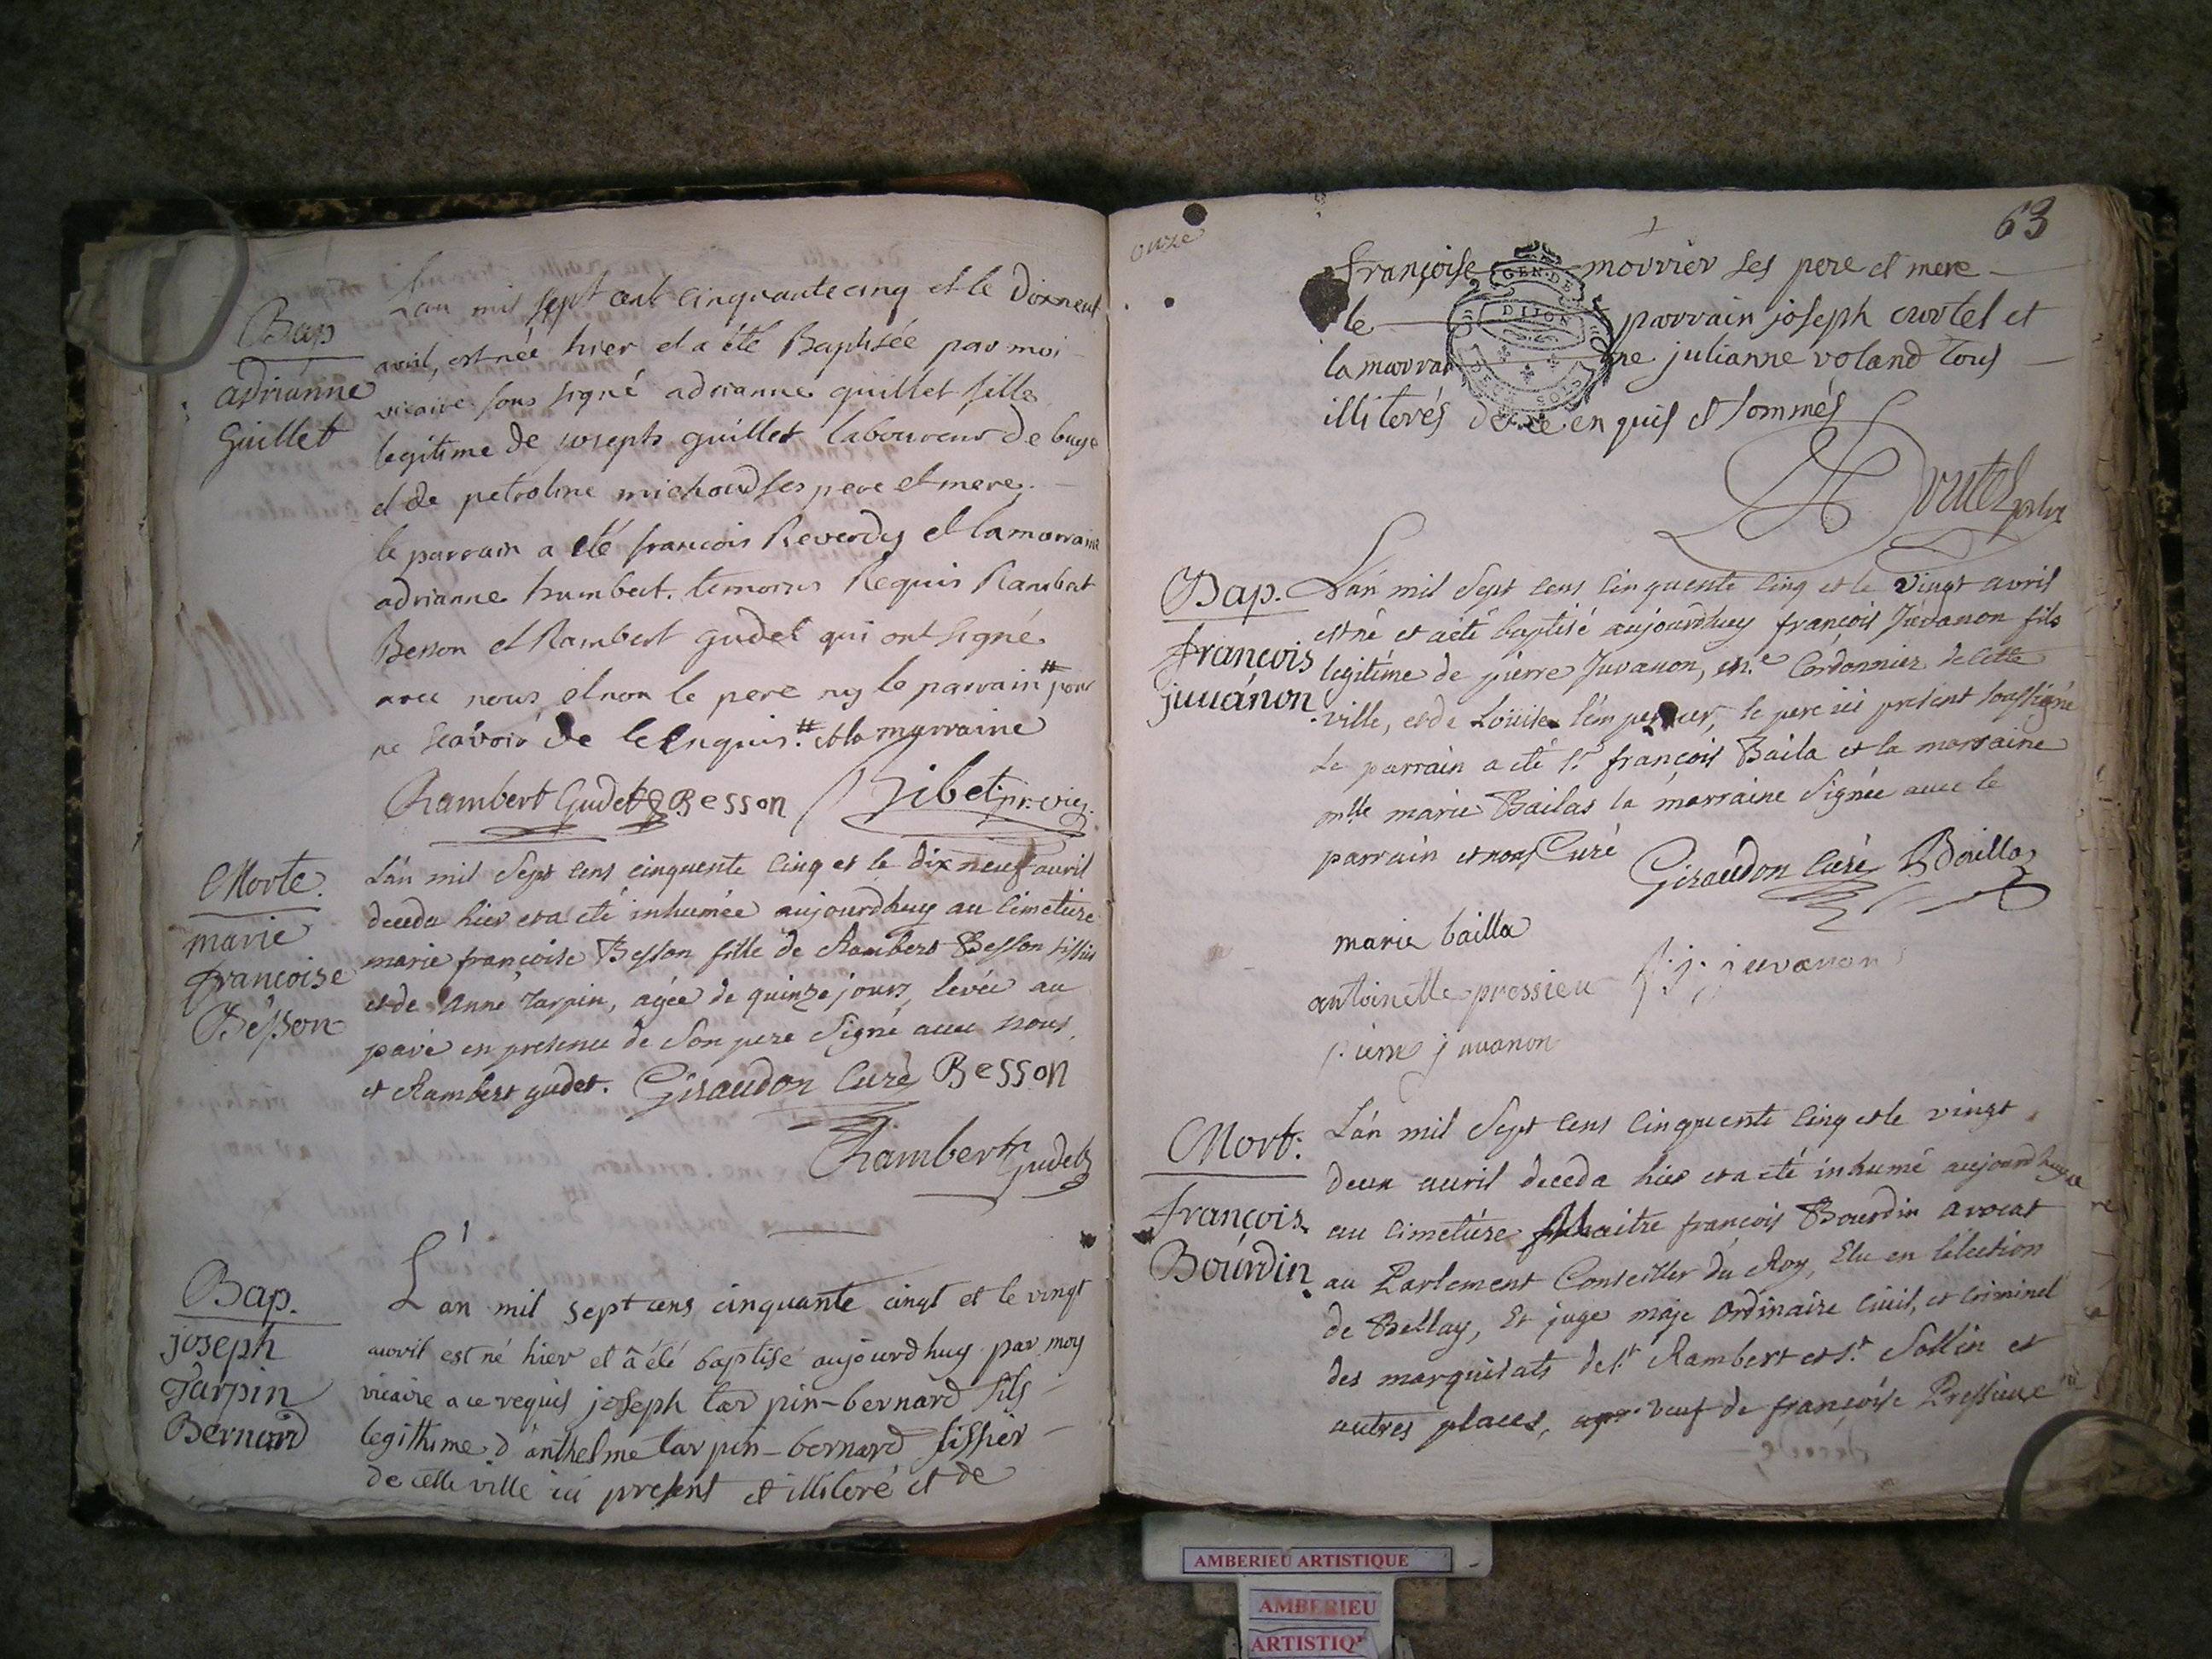 Bap
adrianne
Guillet
L'an mil sept cent cinquante cinq et le dixneuf
avril, est née hier et a été Baptisée par moi
vicaire sous signé adrianne guillet fille
legitime de joseph guillet laboureur de buge
et de petroline michoud ses pere et mere.
le parrain a été francois Reverdy et la marraine
adrianne humbert. temoins Requis Rambert
Besson et Rambert gudet qui ont signé
avec nous et non le pere ny le parrain # pour
ne sçavoir de ce enquis. # et la marraine
Rambert Gudet Besson Ribet pr. vic.
Morte.
marie
françoise
Besson
L'an mil Sept cens cinquente cinq et le dix neuf avril
deceda hier et a été inhumée aujourdhuy au Cimetiere
marie françoise Besson fille de Rambert Besson tissier
et de Anne Tarpin, agée de quinze jours, levée au
pavé en presence de Son pere Signé avec nous,
et Rambert gudet. Giraudon Curé Besson
Rambert Gudet
Bap.
joseph
Tarpin
Bernard
L'an mil sept cens cinquante cinq et le vingt
avril est né hier et a été baptisé aujourdhuy par moy
vicaire a ce requis joseph tarpin-bernard fils
legithime d'anthelme tarpin-bernard tissier
de cette ville ici present et illiteré et de
onze
63
françoise morrier ses pere et mere
GEN. DE
DIJON
le parrain joseph curtel et
la marraine julianne voland tous
illiterés de ce enquis et sommés
Brutel ptre
Bap.
françois
juuanon
L'an mil Sept cens Cinquente Cinq et le vingt avril
est né et a été baptisé aujourdhuy françois Juvanon fils
legitime de pierre Juvanon, m.e Cordonnier de cette
ville, et de Louise l'empereur, le pere ici present soussigné
Le parrain a été Sr. françois Baila et la marraine
mlle marie Bailas la marraine Signée avec le
parrain et nous Curé
Giraudon Curé Bailla
marie bailla
antoinette prossieu f: j: juvanon
pierre juuanon
Mort.
françois
Bourdin
L'an mil Sept Cens Cinquente Cinq et le vingt
deux avril deceda hier et a été inhumé aujourdhuy
au Cimetiere Maitre françois Bourdin avocat
au Parlement Conseiller du Roy, Elu en l'élection
de Bellay, Et juge maje Ordinaire Civil, et Criminel
des marquisats de St. Rambert et St. Sollin et
autres places, veuf de françoise Pressieux
AMBERIEU ARTISTIQUE
AMBERIEU
ARTISTIQ